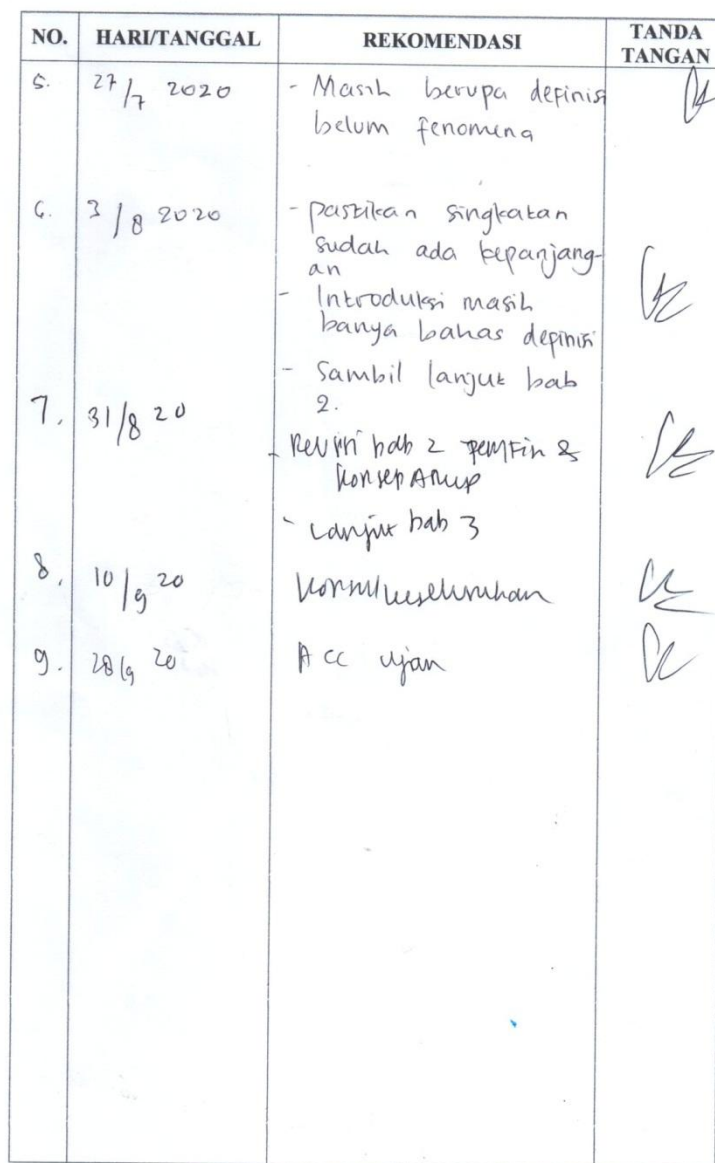 NO. HARI/TANGGAL REKOMENDASI TANDA TANGAN
5. 27/7 2020 - Masih berupa definisi
belum fenomena
6. 3/8 2020 - pastikan singkatan
sudah ada kepanjang-
an
- Introduksi masih
banya bahas definisi
- Sambil lanjut bab
2.
7. 31/8 20
- Revisi bab 2 &
Konsep
- Lanjut bab 3
8. 10/9 20 Konsul keseluruhan
9. 28/9 20 Acc ujian